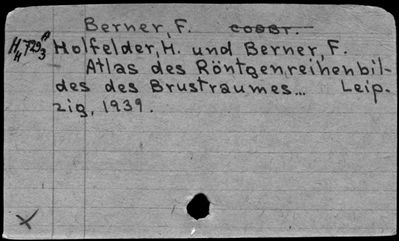 Berner, F. соавт.
H 729 A
4 3
Holfelder, H. und Berner, F.
Atlas des Röntgenreihenbil-
des des Brustraumes... Leip-
zig, 1939.